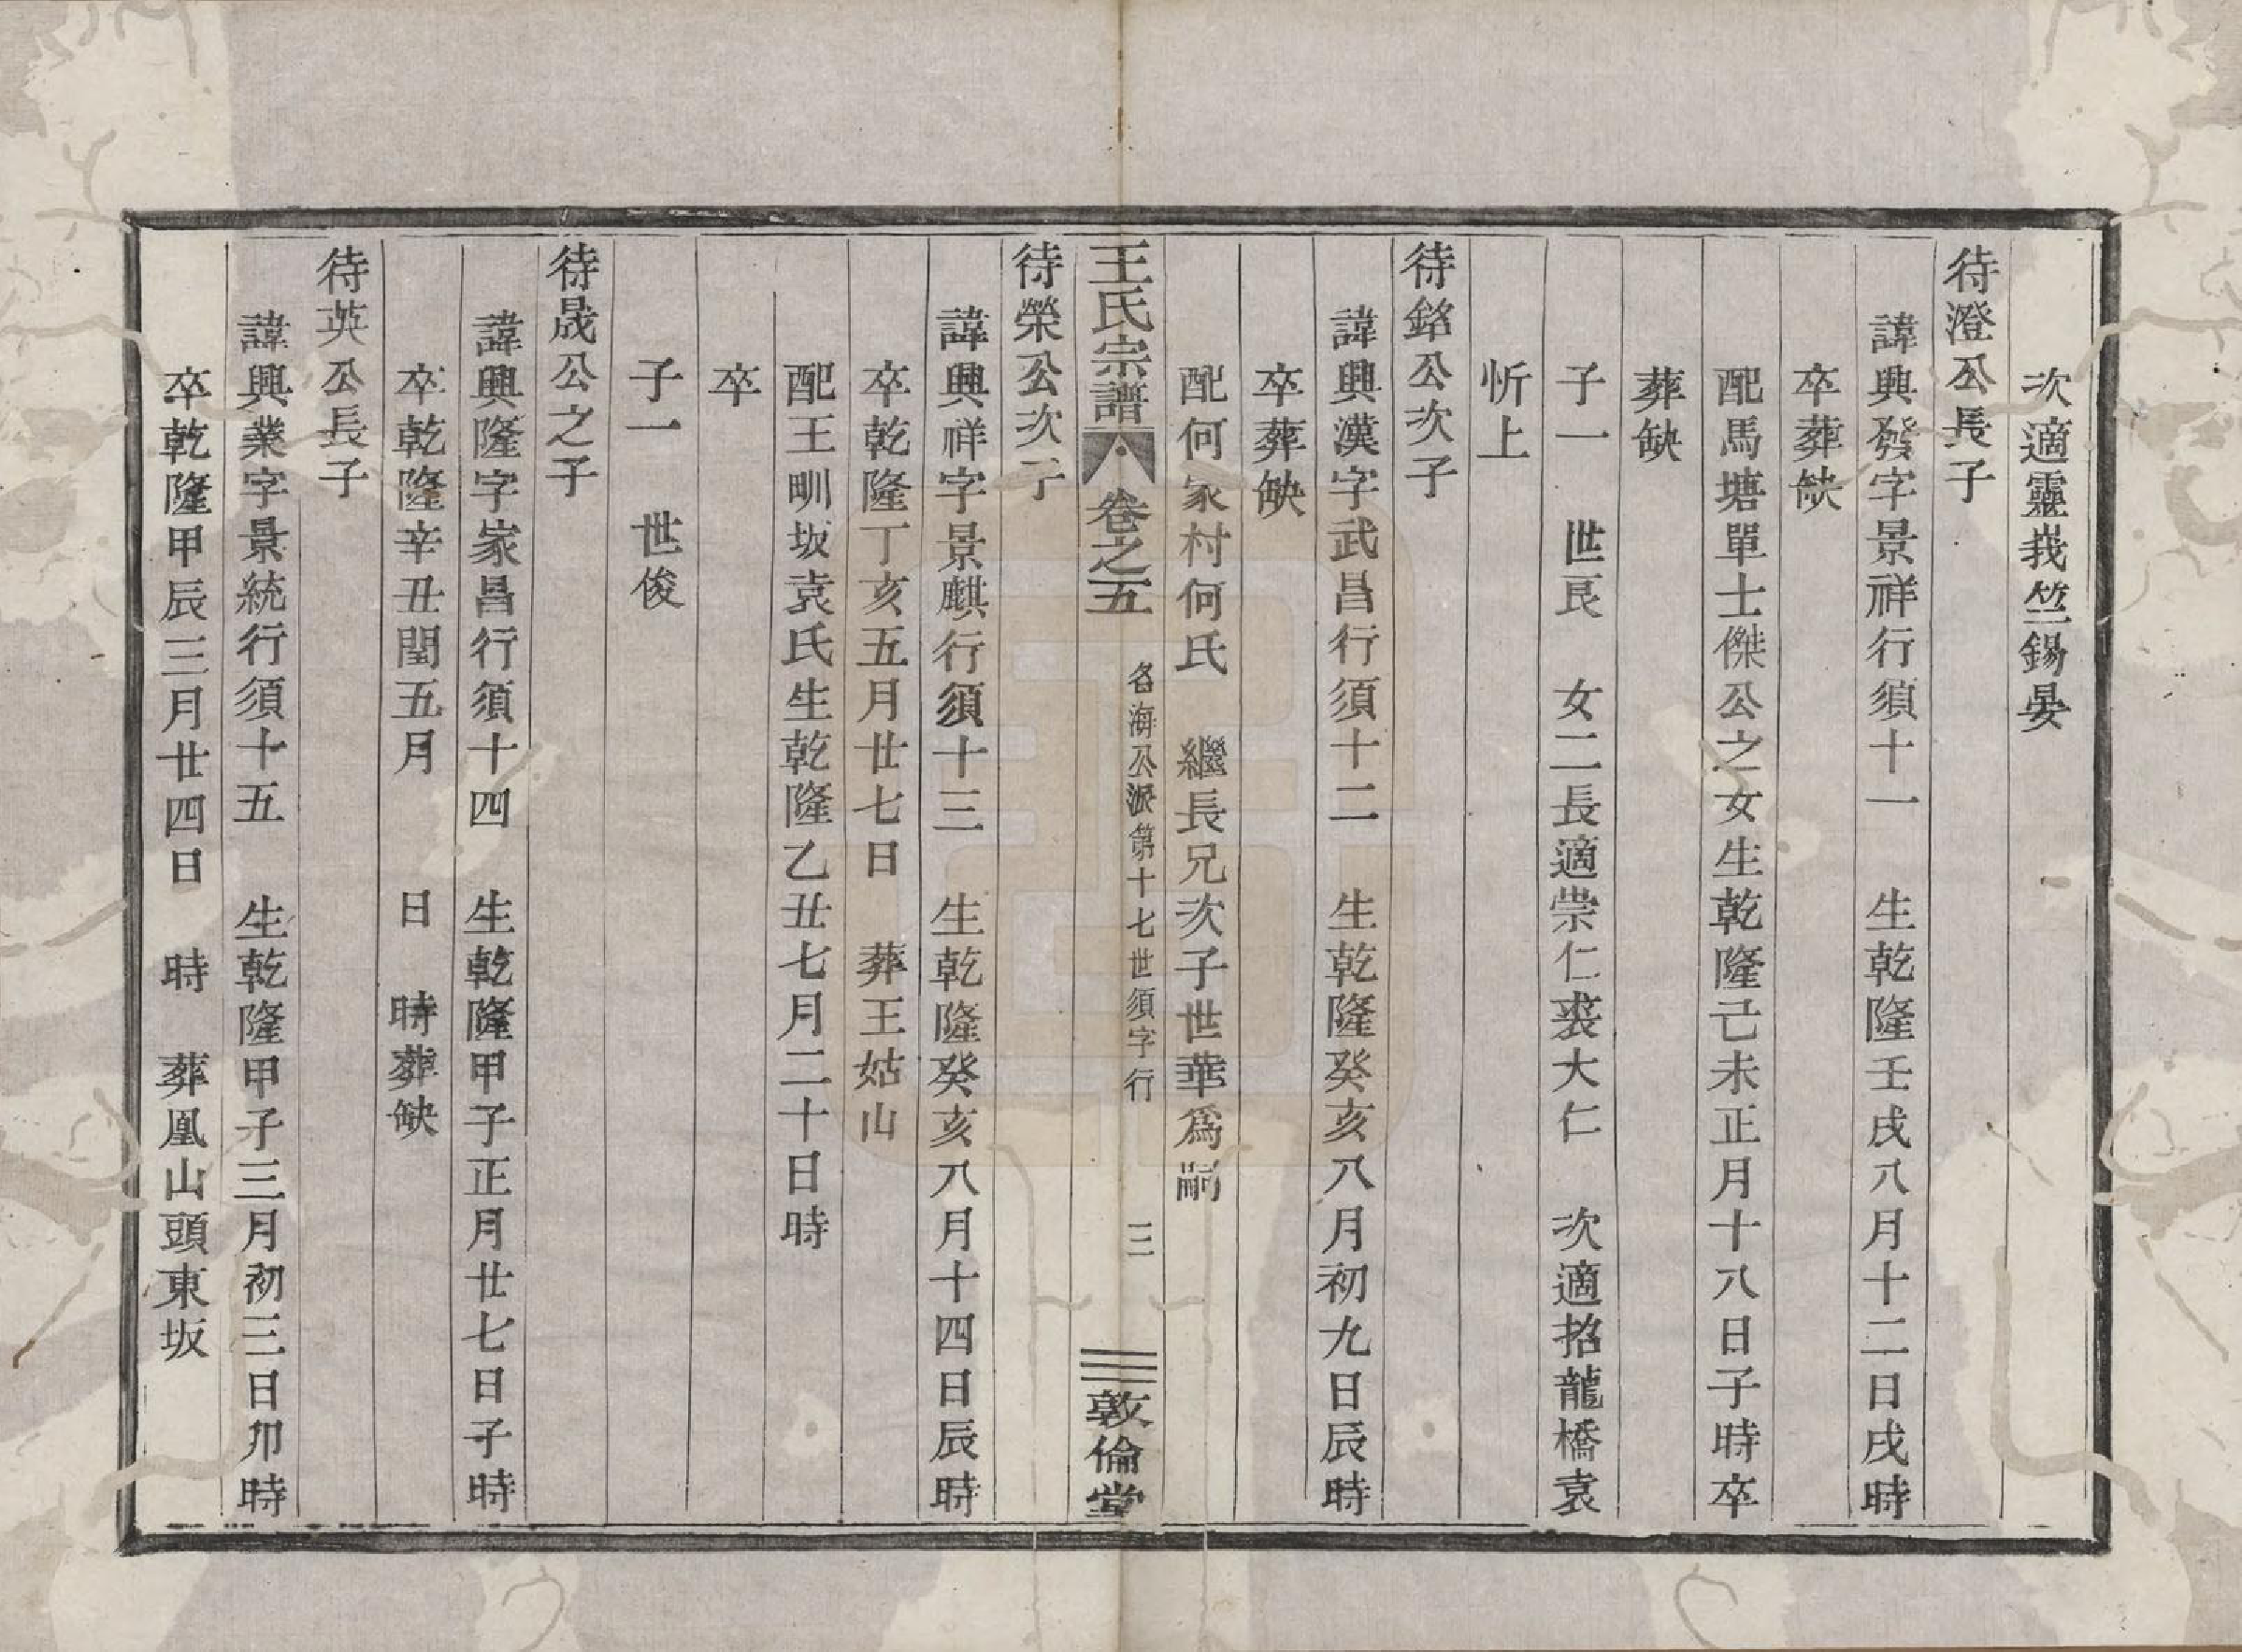 次適靈峩竺錫晏
待澄公長子
諱興發字景祥行須十一　生乾隆壬戌八月十二日戌時
卒葬缺
配馬塘單士傑公之女生乾隆己未正月十八日子時卒
葬缺
子一　世艮　女二長適崇仁裘大仁　次適招龍橋袁
忻上
待銘公次子
諱興漢字武昌行須十二　生乾隆癸亥八月初九日辰時
卒葬缺
配何家村何氏　繼長兄次子世華爲嗣
王氏宗譜　卷之五　各海公派第十七世須字行　三　敦倫堂
待榮公次子
諱興祥字景麒行須十三　生乾隆癸亥八月十四日辰時
卒乾隆丁亥五月廿七日　葬王姑山
配王甽坂袁氏生乾隆乙丑七月二十日時
卒
子一　世俊
待晟公之子
諱興隆字家昌行須十四　生乾隆甲子正月廿七日子時
卒乾隆辛丑閏五月　日　時葬缺
待英公長子
諱興業字景統行須十五　生乾隆甲子三月初三日卯時
卒乾隆甲辰三月廿四日　時　葬凰山頭東坂